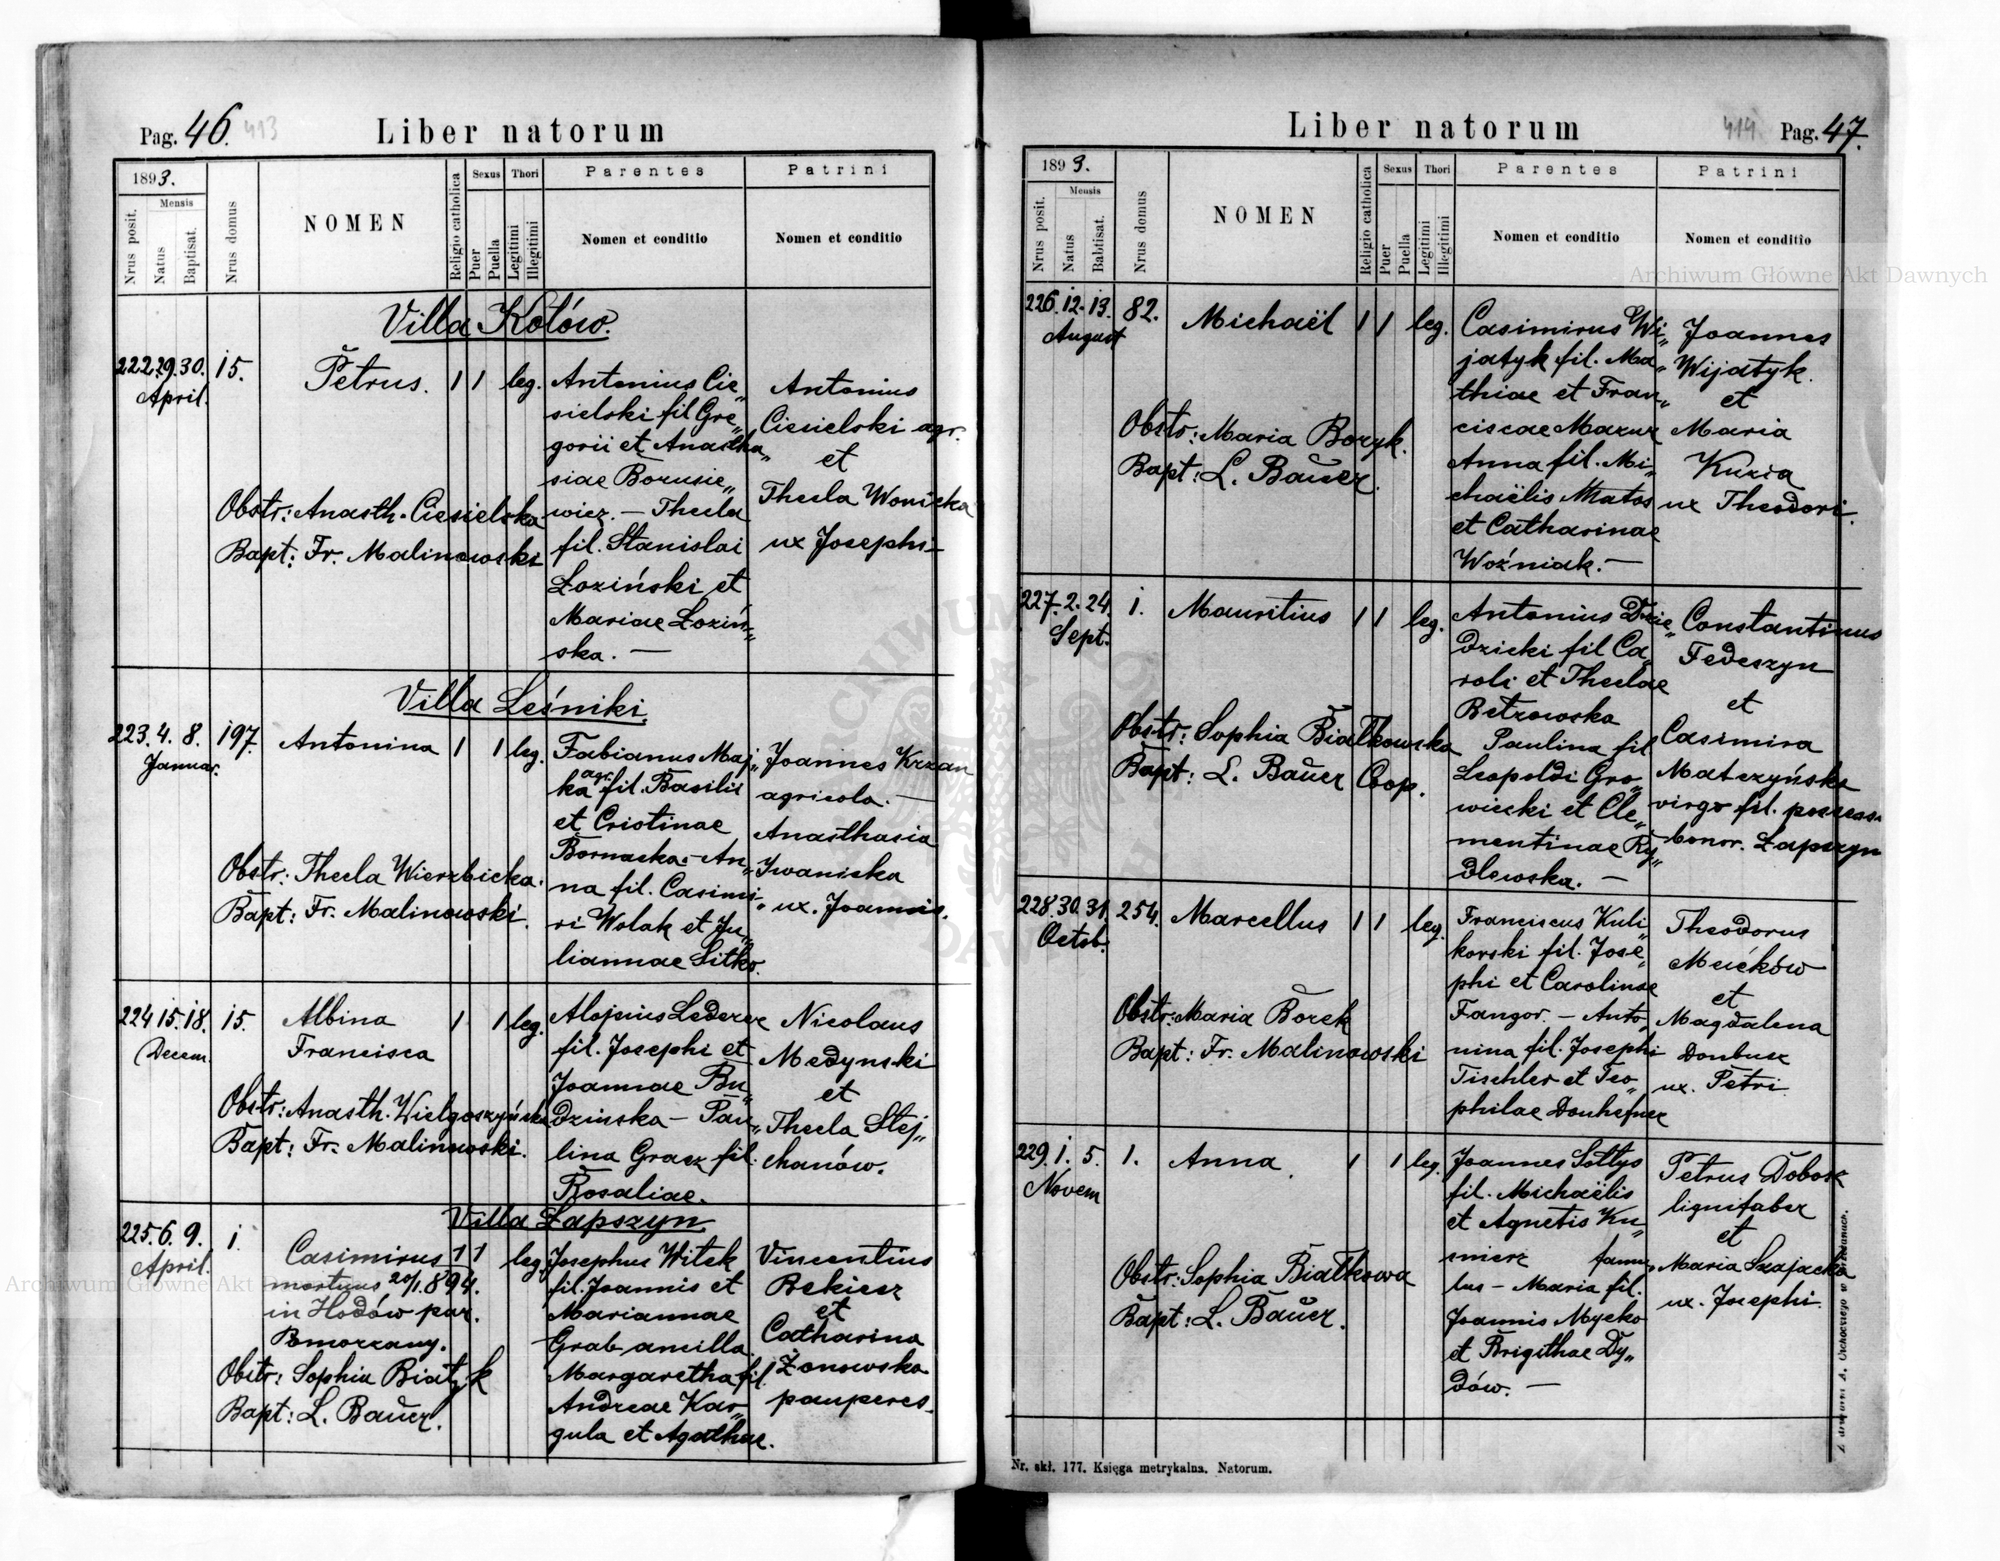 Pag. 46. 413
Liber natorum
1893.
Nrus posit.
Mensis
Natus
Baptisat.
Nrus domus
NOMEN
Religio catholica
Sexus
Puer
Puella
Thori
Legitimi
Illegitimi
Parentes
Nomen et conditio
Patrini
Nomen et conditio
Villa Kotów.
222. 29. 30. 15. Petrus. 1 1 leg.
April.
Antonius Cie„
sielski fil Gre„
gorii et Anastha„
siae Borusie„
wicz. — Thecla
fil. Stanislai
Łoziński et
Mariae Łoziń„
ska. —
Antonius
Ciesielski agr.
et
Thecla Wonicka
ux Josephi
Obstr: Anasth. Ciesielska
Bapt: Fr. Malinowski
Villa Leśniki
223. 4. 8. 197. Antonina 1 1 leg.
Januar.
Fabianus Maj„
ka agr. fil. Basilii
et Cristinae
Bornacka - An„
na fil. Casimi„
ri Wolak et Ju„
liannae Sitko.
Joannes Krzan
agricola. —
Anasthasia
Iwaniska
ux. Joannis.
Obstr: Thecla Wierzbicka.
Bapt: Fr. Malinowski.
224 15. 18. 15. Albina 1 1 leg.
Decem. Francisca
Alojsius Lederer
fil. Josephi et
Joannae Bu„
dzinska — Pau„
lina Gracz fil.
Rosaliae.
Nicolaus
Medynski
et
Thecla Stej„
chanów.
Obstr: Anasth. Wielgoszyńska
Bapt: Fr. Malinowski.
Villa Łapszyn
225. 6. 9. 1. Casimirus 1 1 leg.
April.
mortuus 20/1 894.
in Hodów par.
Pomorzany.
Josephus Witek
fil. Joannis et
Mariannae
Grab ancilla
Margaretha fil.
Andreae Kar„
gula et Agathae.
Vincentius
Bekiesz
et
Catharina
Zonowska
pauperes.
Obstr: Sophia Białyk
Bapt: L. Bauer.
Liber natorum
414 Pag. 47.
1893.
Nrus posit.
Mensis
Natus
Babtisat.
Nrus domus
NOMEN
Religio catholica
Sexus
Puer
Puella
Thori
Legitimi
Illegitimi
Parentes
Nomen et conditio
Patrini
Nomen et conditio
226. 12. 13. 82. Michaël 1 1 leg.
August
Casimirus Wi„
jatyk fil. Ma„
thiae et Fran„
ciscae Mazur
Anna fil. Mi„
chaëlis Matos
et Catharinae
Woźniak. —
Joannes
Wijatyk.
et
Maria
Kuzia
ux Theodori.
Obstr: Maria Boryk.
Bapt: L. Bauer.
227. 2. 24. 1. Mauritius 1 1 leg.
Sept.
Antonius Dzie„
dzicki fil Ca„
roli et Theclae
Betrowska
Paulina fil
Leopoldi Gro„
wiecki et Cle„
mentinae Ry„
dlewska. —
Constantinus
Fedeszyn
et
Casimira
Matczyńska
virgo fil. possess.
bonor. Łapszyn
Obstr: Sophia Białkowska
Bapt: L. Bauer Coop.
228. 30. 31. 254. Marcellus 1 1 leg.
Octob.
Franciscus Kuli„
kowski fil. Jose„
phi et Carolinae
Fangor. — Anto„
nina fil. Josephi
Tischler et Teo„
philae Donhefner
Theodorus
et
Magdalena
Donbusz
ux. Petri
Obstr: Maria Borek
Bapt: Fr. Malinowski
229. 1. 5. 1. Anna 1 1 leg.
Novem
Joannes Sołtys
fil. Michaëlis
et Agnetis Ku„
śnierz famu„
lus — Maria fil.
Joannis Mycko
et Brigithae Dy„
dów. —
Petrus Dobosz
lignifaber
et
Maria Szajacka
ux. Josephi.
Obstr: Sophia Białkowa
Bapt: L. Bauer.
Nr. skł. 177. Księga metrykalna. Natorum.
Archiwum Główne Akt Dawnych
Archiwum Główne Akt Dawnych